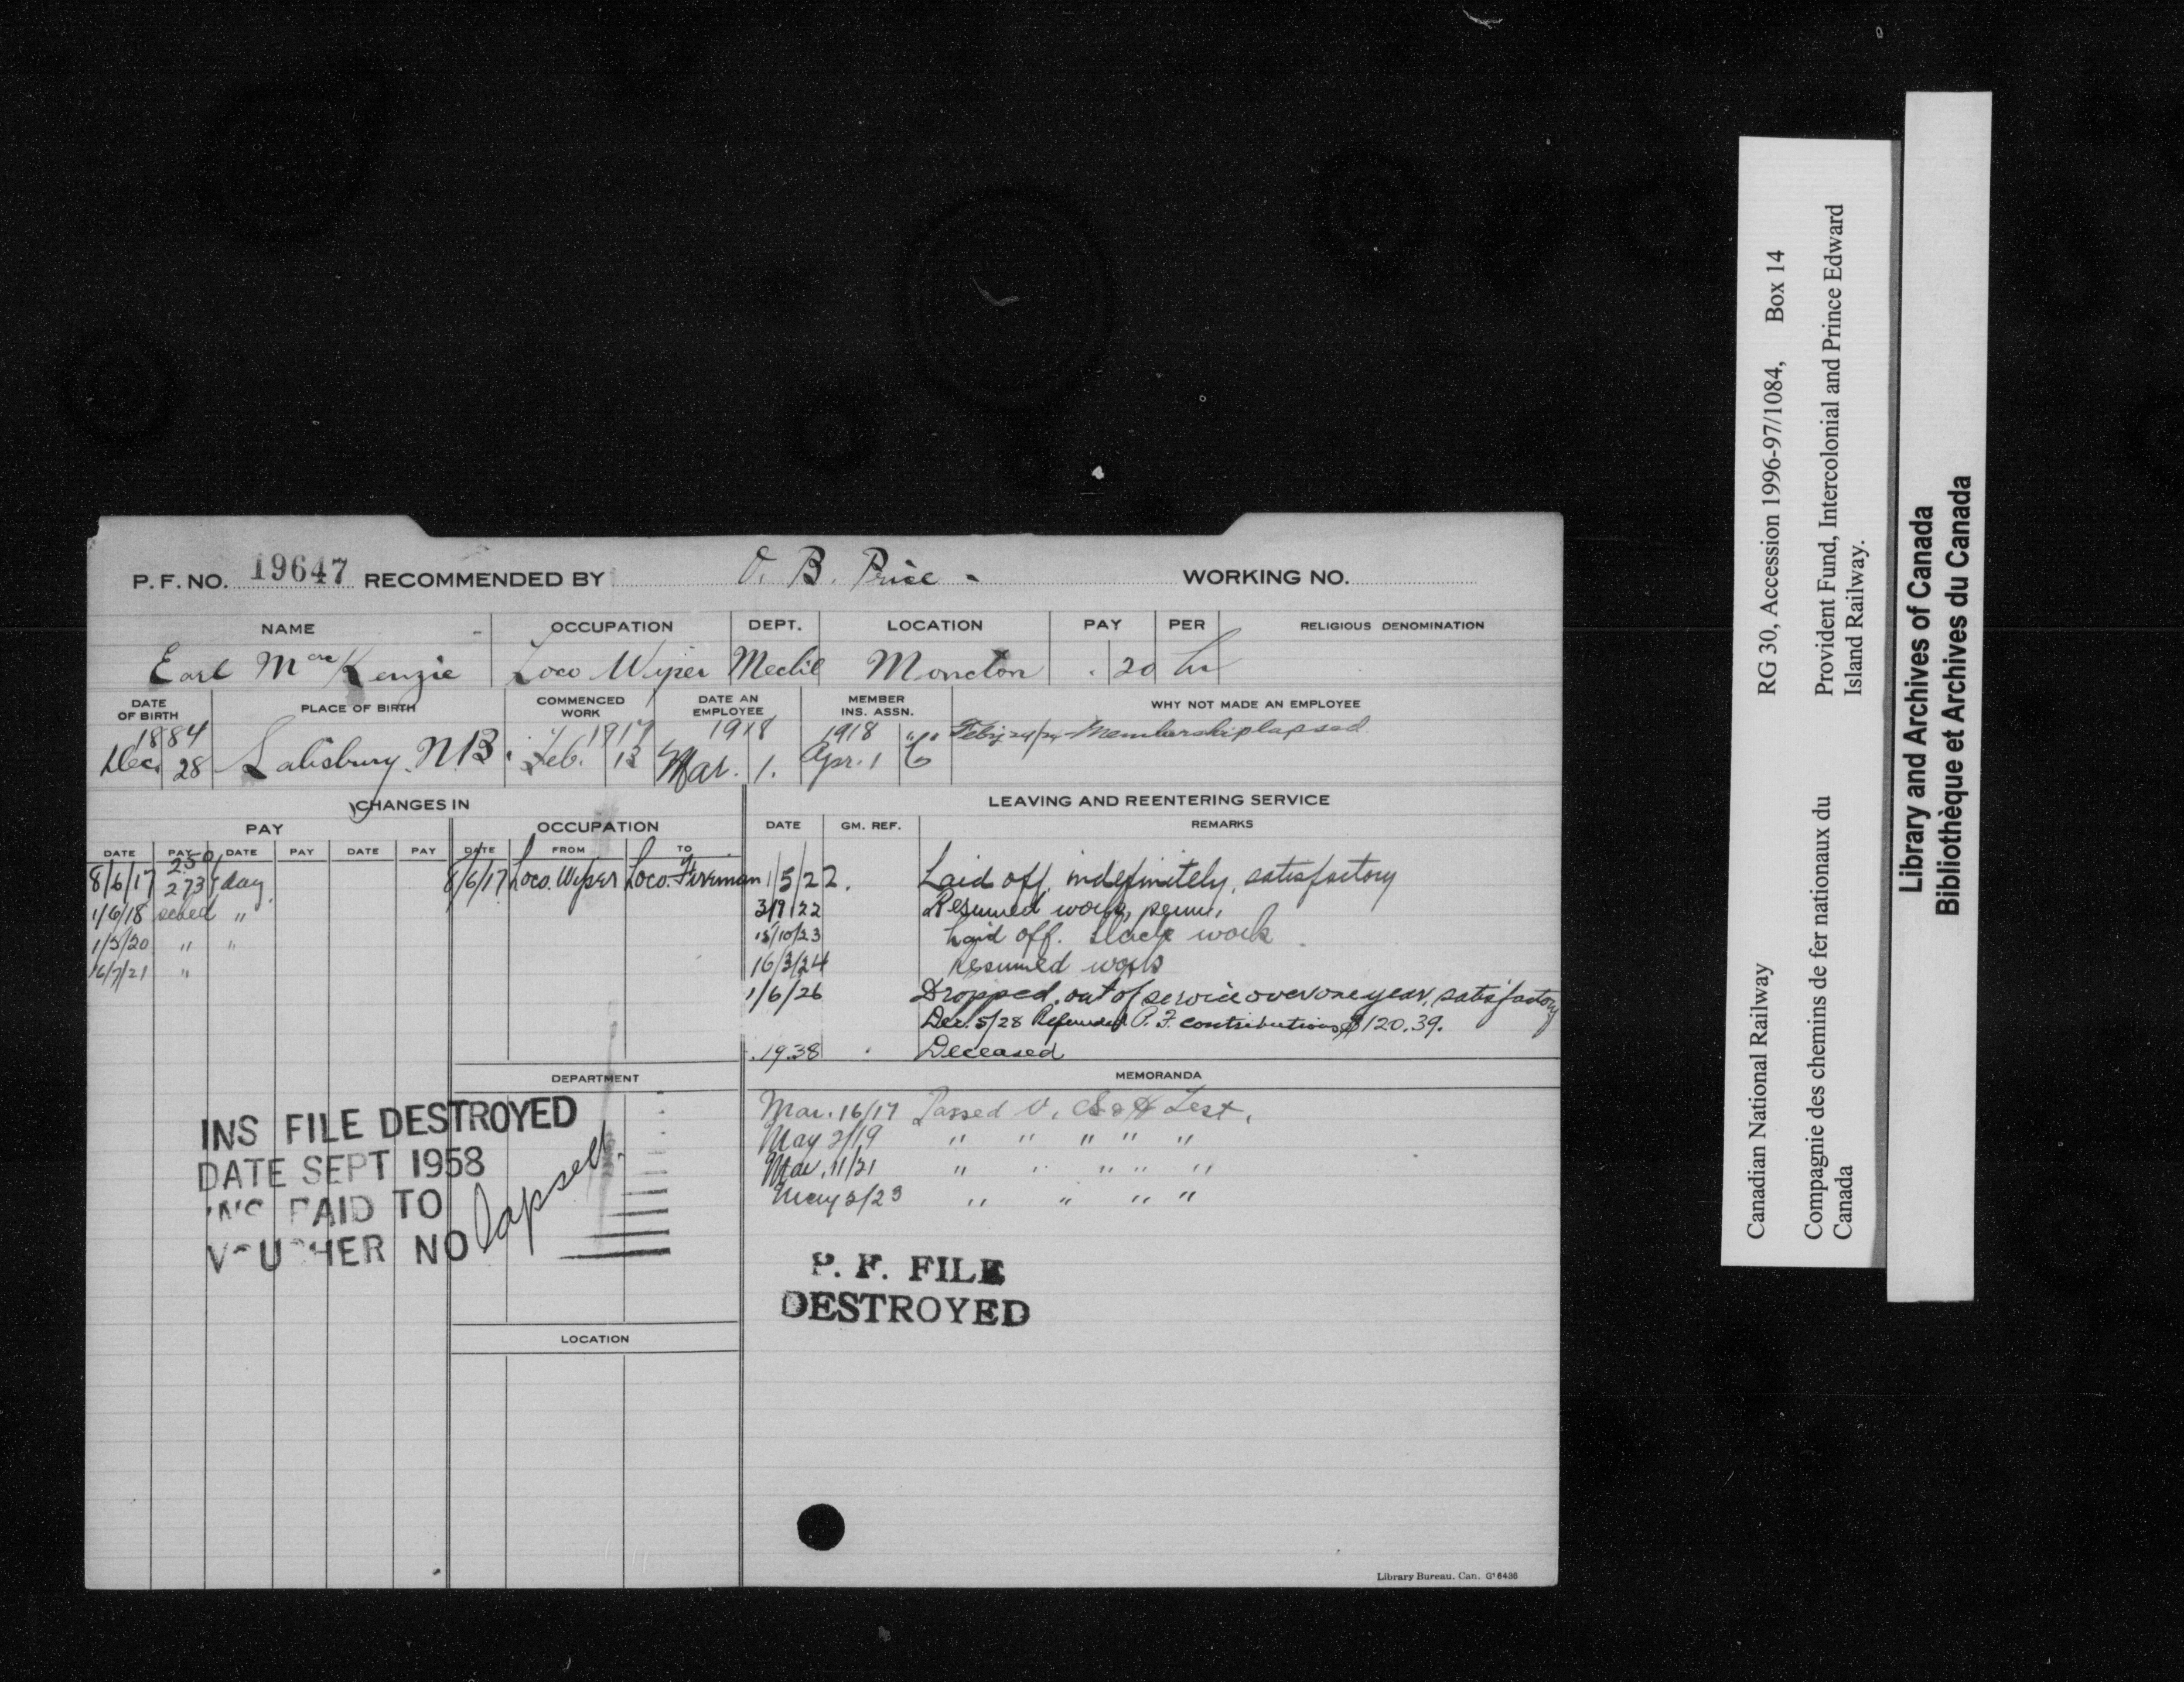 P. F. NO. 19647 RECOMMENDED BY O. B. Price - WORKING NO.
NAME OCCUPATION DEPT. LOCATION PAY PER RELIGIOUS DENOMINATION
Earl MacKenzie Loco Wiper Mechl Moncton .20 hr
DATE OF BIRTH PLACE OF BIRTH COMMENCED WORK DATE AN EMPLOYEE MEMBER INS. ASSN. WHY NOT MADE AN EMPLOYEE
1884 1917 1918 1918 Feby 24/24 Membership lapsed
Dec. 28 Salisbury N.B. Feb. 13 Mar. 1. Apr. 1 "C"
CHANGES IN LEAVING AND REENTERING SERVICE
PAY OCCUPATION DATE GM. REF. REMARKS
DATE PAY DATE PAY DATE PAY DATE FROM TO
8/6/17 2.50 2.73 day 8/6/17 Loco. Wiper Loco. Fireman 1/5/22. Laid off, indefinitely, satisfactory
1/6/18 sched " 3/9/22 Resumed work, perm.
1/5/20 " " 15/10/23 Laid off. slack work
16/7/21 " 16/3/24 Resumed work
1/6/26 Dropped, out of service over one year, satisfactory
Dec. 5/28 Refunded P. F. contributions $120.39.
1938 Deceased
DEPARTMENT MEMORANDA
Mar. 16/17 Passed V. C.S & H Test.
May 2/19 " " " " "
Mar. 11/21 " " " " "
May 2/23 " " " "
INS FILE DESTROYED
DATE SEPT 1958
INS PAID TO
VOUCHER NO lapsed.
P. F. FILE
DESTROYED
LOCATION
Library Bureau. Can. G16436
Canadian National Railway RG 30, Accession 1996-97/1084, Box 14
Compagnie des chemins de fer nationaux du Provident Fund, Intercolonial and Prince Edward
Canada Island Railway.
Library and Archives of Canada
Bibliothèque et Archives du Canada